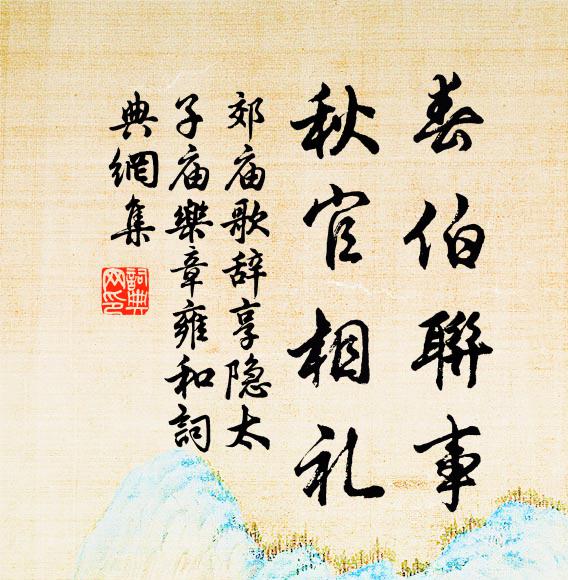 春伯聯事
秋官相礼
郊庙歌辞享隐太
子庙樂章雍和詞
典網集
詞典网印